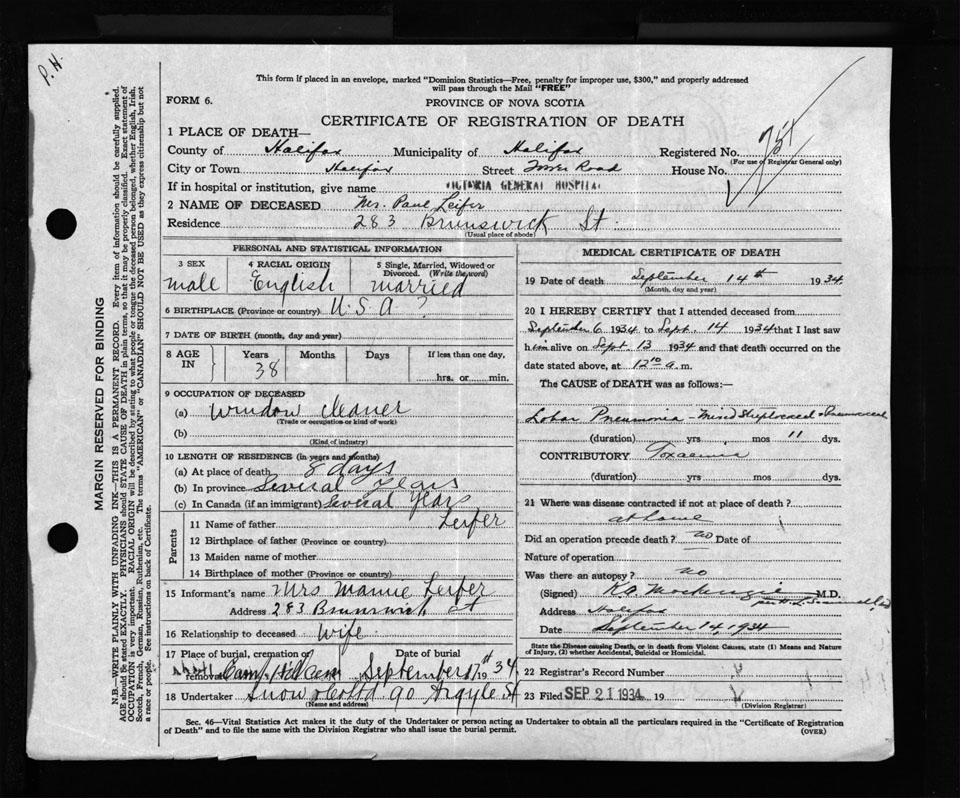 P.H.
This form if placed in an envelope, marked "Dominion Statistics—Free, penalty for improper use, $300," and properly addressed
will pass through the Mail "FREE"
FORM 6.
PROVINCE OF NOVA SCOTIA
CERTIFICATE OF REGISTRATION OF DEATH
1 PLACE OF DEATH—
County of Halifax Municipality of Halifax Registered No.
(For use of Registrar General only)
City or Town Halifax Street Tower Road House No.
If in hospital or institution, give name VICTORIA GENERAL HOSPITAL
2 NAME OF DECEASED Mr. Paul Leifer
Residence 283 Brunswick St.
(Usual place of abode)
PERSONAL AND STATISTICAL INFORMATION
3 SEX
male
4 RACIAL ORIGIN
English
5 Single, Married, Widowed or
Divorced. (Write the word)
married
6 BIRTHPLACE (Province or country) U.S.A ?
7 DATE OF BIRTH (month, day and year)
8 AGE IN Years Months Days If less than one day,
38 hrs. or min.
9 OCCUPATION OF DECEASED
(a) Window Cleaner
(Trade or occupation or kind of work)
(b)
(Kind of industry)
10 LENGTH OF RESIDENCE (in years and months)
(a) At place of death 8 days
(b) In province Several Years
(c) In Canada (if an immigrant) Several Years
Parents
11 Name of father Leifer
12 Birthplace of father (Province or country)
13 Maiden name of mother
14 Birthplace of mother (Province or country)
15 Informant's name Mrs Leifer
Address 283 Brunswick St
16 Relationship to deceased Wife
17 Place of burial, cremation or removal Date of burial
Camp Hill Cem September 17th 1934
18 Undertaker Snow & Co Ltd. 90 Argyle St
(Name and address)
MEDICAL CERTIFICATE OF DEATH
19 Date of death September 14th 1934
(Month, day and year)
20 I HEREBY CERTIFY that I attended deceased from
September 6 1934 to Sept. 14 1934 that I last saw
him alive on Sept. 13 1934 and that death occurred on the
date stated above, at 12 10 a. m.
The CAUSE of DEATH was as follows:
Lobar Pneumonia - Mixed
(duration) yrs. mos 11 dys.
CONTRIBUTORY Toxaemia
(duration) yrs. mos. dys
21 Where was disease contracted if not at place of death?
at home
Did an operation precede death? no Date of
Nature of operation
Was there an autopsy? no
(Signed) K.A. MacKenzie M.D.
Address Halifax
Date September 14, 1934
State the Disease causing Death, or in death from Violent Causes, state (1) Means and Nature
of Injury, (2) whether Accidental, Suicidal or Homicidal.
22 Registrar's Record Number
23 Filed SEP 21 1934 19
(Division Registrar)
Sec. 46—Vital Statistics Act makes it the duty of the Undertaker or person acting as Undertaker to obtain all the particulars required in the "Certificate of Registration
of Death" and to file the same with the Division Registrar who shall issue the burial permit.
(OVER)
MARGIN RESERVED FOR BINDING
N.B.—WRITE PLAINLY WITH UNFADING INK—THIS IS A PERMANENT RECORD. Every item of information should be carefully supplied.
AGE should be stated EXACTLY. PHYSICIANS should STATE CAUSE OF DEATH in plain terms, so that it may be properly classified. Exact statement of
OCCUPATION is very important. RACIAL ORIGIN will be described by stating to what people or tongue the deceased person belonged, whether English, Irish,
Scotch, French, German, Russian, Ruthenian, etc. The terms "AMERICAN" or "CANADIAN" SHOULD NOT BE USED as they express citizenship but not
a race or people. See instructions on back of Certificate.